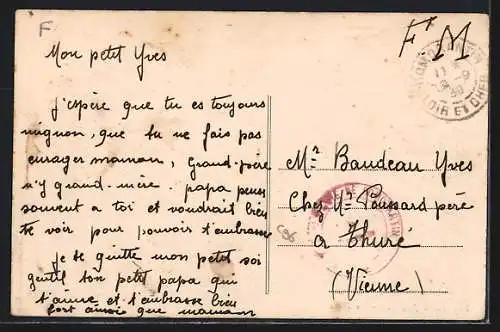 F
F M
Mon petit Yves
J'espère que tu es toujours
mignon, que tu ne fais pas
enrager maman, Grand-père
n'y grand-mère. papa pense
souvent a toi et voudrait bien
te voir pour pouvoir t'embrasser
je te quitte mon petit soi
gentil ton petit papa qui
t'aime et t'embrasse bien
fort ainsi que maman
Mr Baudeau Yves
Chez Mr Poussard père
a Thuré
(Vienne)
LOIR ET CHER